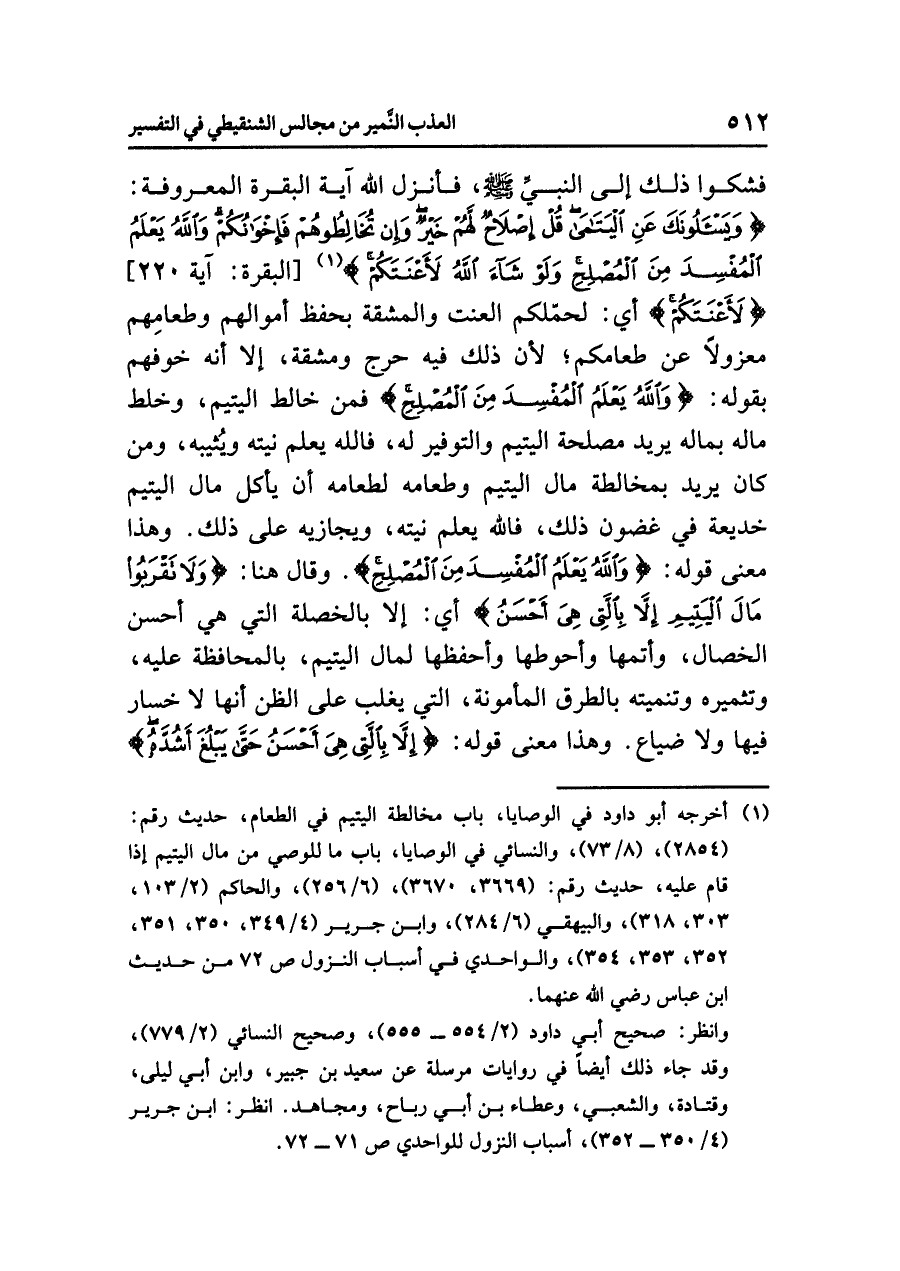 ٥١٢ العذب النَّمير من مجالس الشنقيطي في التفسير
فشكوا ذلك إلى النبيِّ ﷺ، فأنزل الله آية البقرة المعروفة:
﴿ وَيَسْـَٔلُونَكَ عَنِ ٱلْيَتَٰمَىٰۖ قُلْ إِصْلَاحٌ لَّهُمْ خَيْرٌۖ وَإِن تُخَالِطُوهُمْ فَإِخْوَٰنُكُمْۚ وَٱللَّهُ يَعْلَمُ
ٱلْمُفْسِدَ مِنَ ٱلْمُصْلِحِۚ وَلَوْ شَآءَ ٱللَّهُ لَأَعْنَتَكُمْۚ ﴾(١) [البقرة: آية ٢٢٠]
﴿ لَأَعْنَتَكُمْۚ ﴾ أي: لحمّلكم العنت والمشقة بحفظ أموالهم وطعامِهم
معزولاً عن طعامكم؛ لأن ذلك فيه حرج ومشقة، إلا أنه خوفهم
بقوله: ﴿ وَٱللَّهُ يَعْلَمُ ٱلْمُفْسِدَ مِنَ ٱلْمُصْلِحِۚ ﴾ فمن خالط اليتيم، وخلط
ماله بماله يريد مصلحة اليتيم والتوفير له، فالله يعلم نيته ويُثيبه، ومن
كان يريد بمخالطة مال اليتيم وطعامه لطعامه أن يأكل مال اليتيم
خديعة في غضون ذلك، فالله يعلم نيته، ويجازيه على ذلك. وهذا
معنى قوله: ﴿ وَٱللَّهُ يَعْلَمُ ٱلْمُفْسِدَ مِنَ ٱلْمُصْلِحِۚ ﴾. وقال هنا: ﴿ وَلَا تَقْرَبُوا۟
مَالَ ٱلْيَتِيمِ إِلَّا بِٱلَّتِى هِىَ أَحْسَنُ ﴾ أي: إلا بالخصلة التي هي أحسن
الخصال، وأتمها وأحوطها وأحفظها لمال اليتيم، بالمحافظة عليه،
وتثميره وتنميته بالطرق المأمونة، التي يغلب على الظن أنها لا خسار
فيها ولا ضياع. وهذا معنى قوله: ﴿ إِلَّا بِٱلَّتِى هِىَ أَحْسَنُ حَتَّىٰ يَبْلُغَ أَشُدَّهُۥۖ ﴾
(١) أخرجه أبو داود في الوصايا، باب مخالطة اليتيم في الطعام، حديث رقم:
(٢٨٥٤)، (٨/ ٧٣)، والنسائي في الوصايا، باب ما للوصي من مال اليتيم إذا
قام عليه، حديث رقم: (٣٦٦٩، ٣٦٧٠)، (٦/ ٢٥٦)، والحاكم (٢/ ١٠٣،
٣٠٣، ٣١٨)، والبيهقي (٦/ ٢٨٤)، وابن جرير (٤/ ٣٤٩، ٣٥٠، ٣٥١،
٣٥٢، ٣٥٣، ٣٥٤)، والواحدي في أسباب النزول ص ٧٢ من حديث
ابن عباس رضي الله عنهما.
وانظر: صحيح أبي داود (٢/ ٥٥٤ ــ ٥٥٥)، وصحيح النسائي (٢/ ٧٧٩)،
وقد جاء ذلك أيضاً في روايات مرسلة عن سعيد بن جبير، وابن أبي ليلى،
وقتادة، والشعبي، وعطاء بن أبي رباح، ومجاهد. انظر: ابن جرير
(٤/ ٣٥٠ ــ ٣٥٢)، أسباب النزول للواحدي ص ٧١ ــ ٧٢.